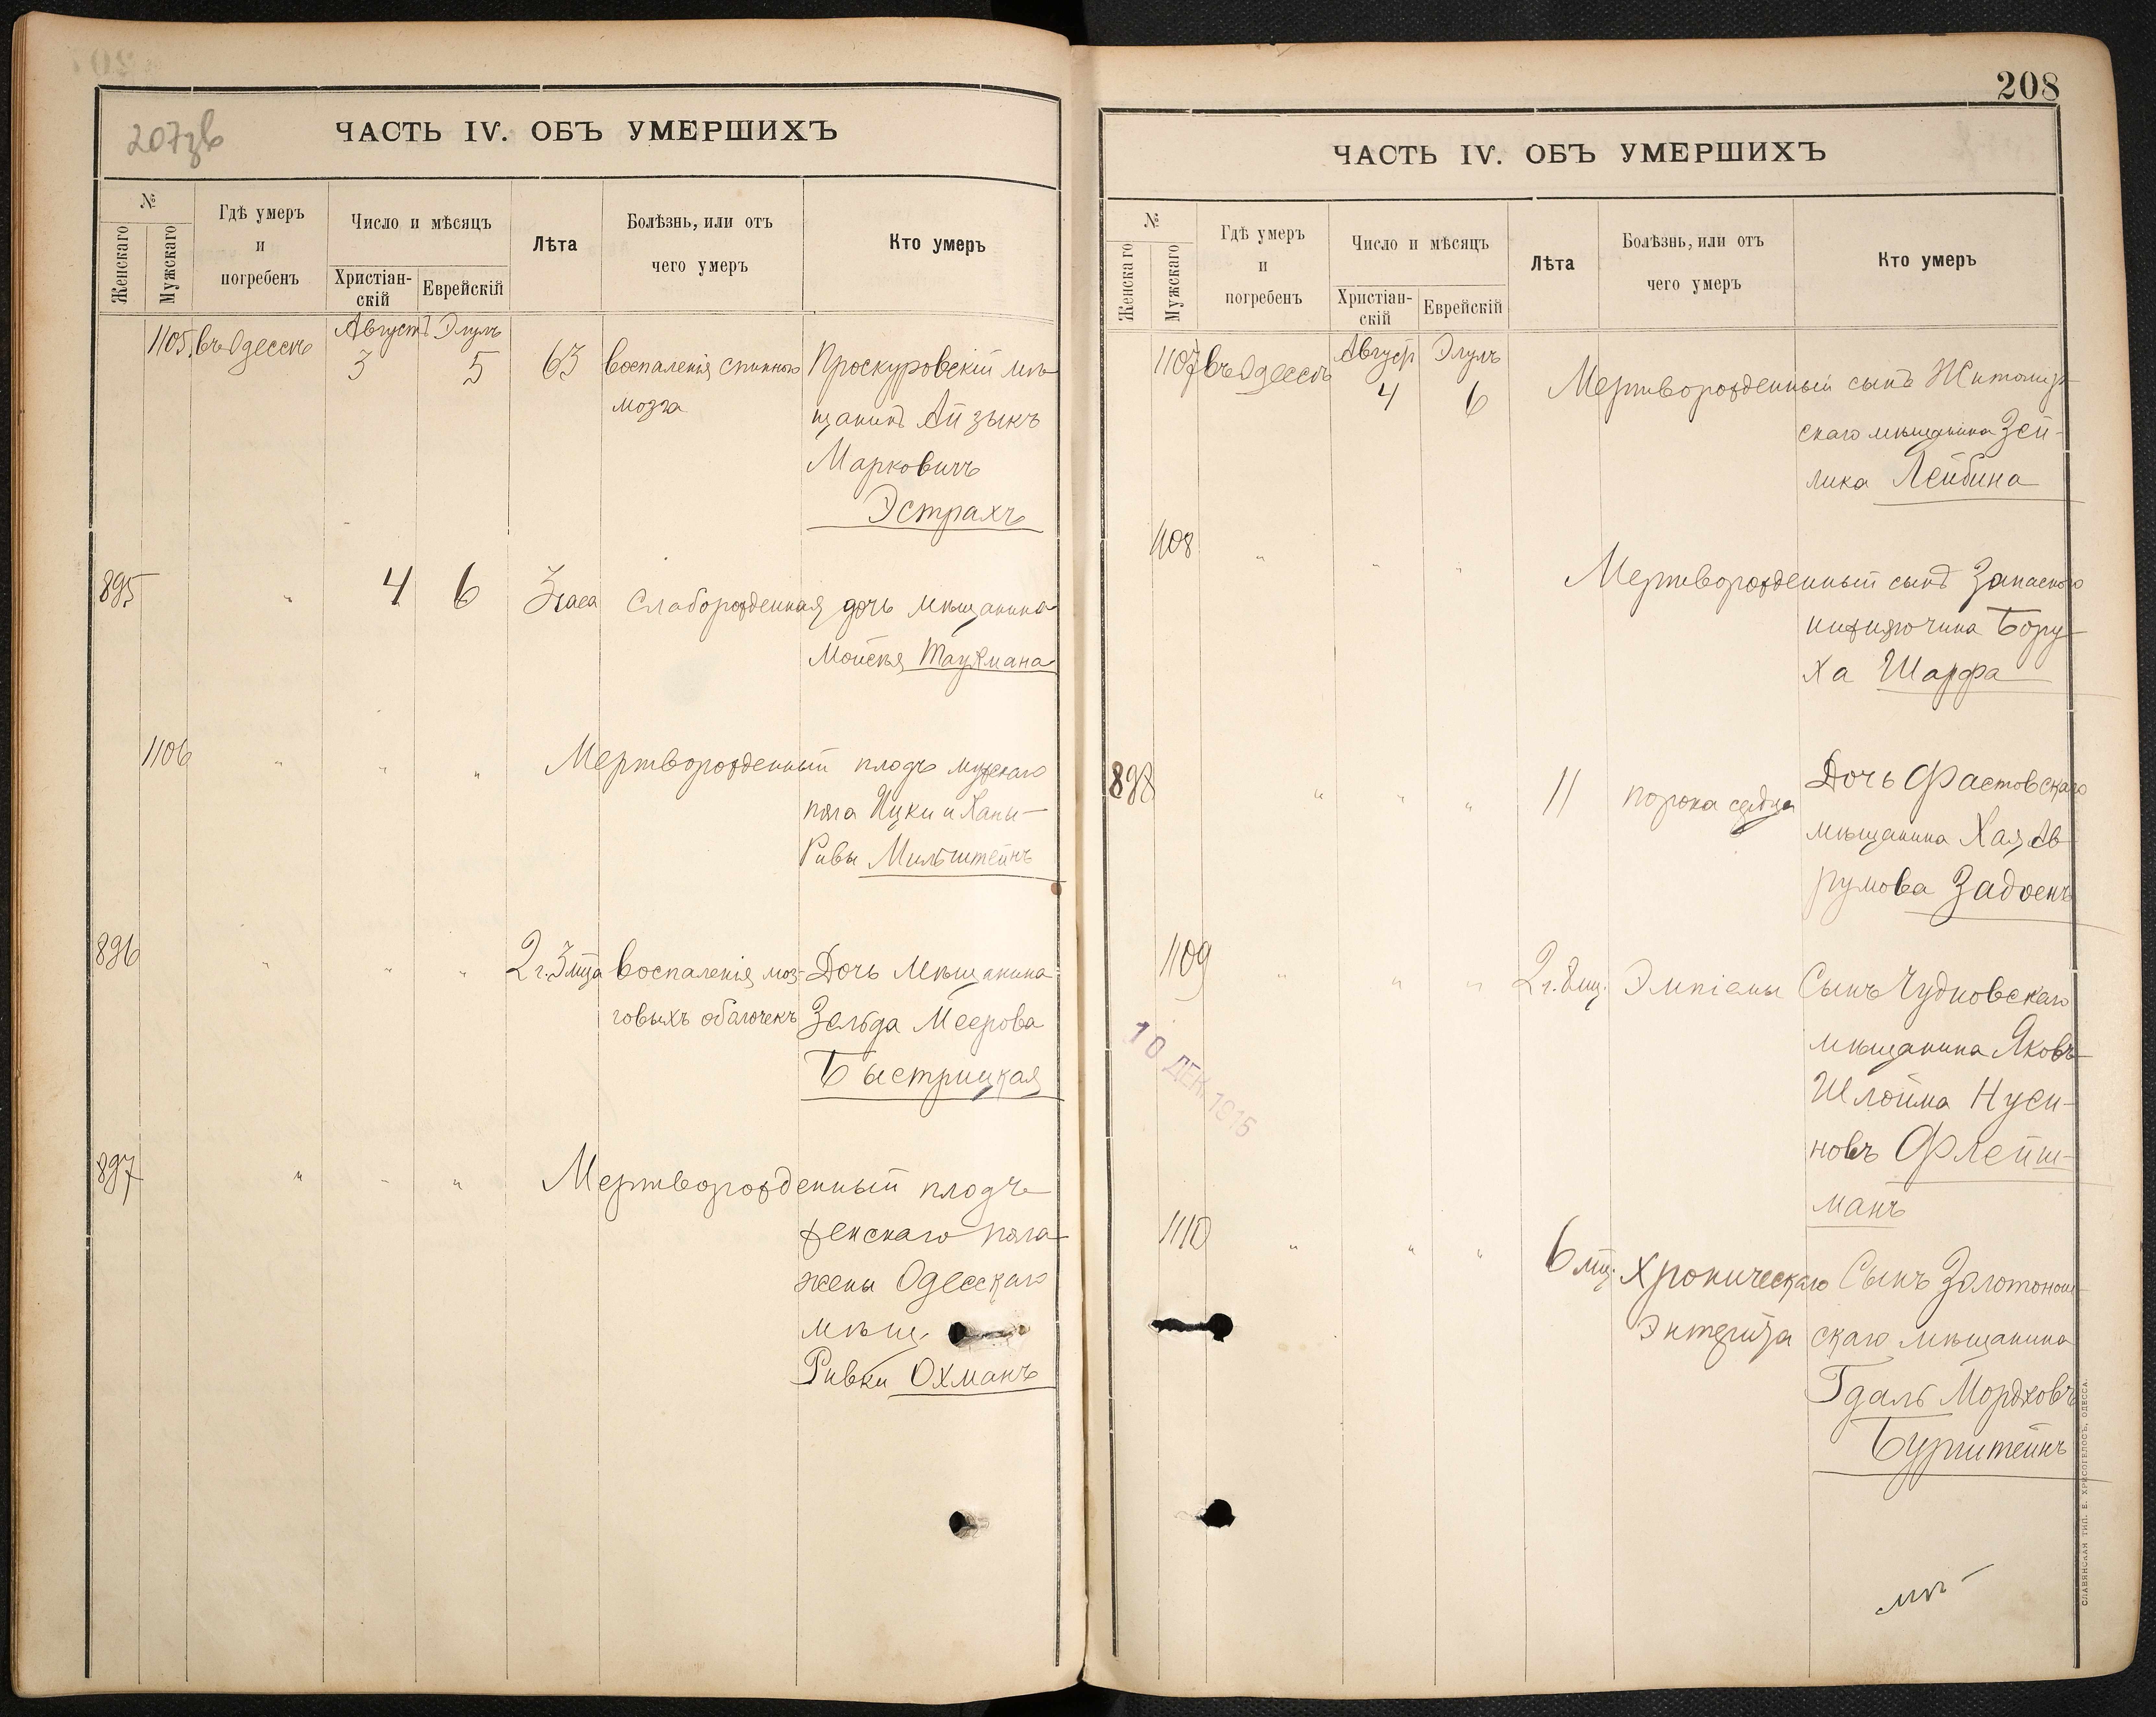 207зв
ЧАСТЬ IV. ОБЪ УМЕРШИХЪ
№
Женскаго
Мужскаго
Гдѣ умеръ
и
погребенъ
Число и мѣсяцъ
Христіан-
скій
Еврейскій
Лѣта
Болѣзнь, или отъ
чего умеръ
Кто умеръ
1105. въ Одессѣ Августъ Элулъ
3 5 63 воспаленія спинного Проскуровскій мѣ-
мозга щанинъ Айзыкъ
Марковичъ
Эстрахъ
895 " 4 6 3 часа Слаборожденная дочь мѣщанина
Мойсѣя Таукмана
1106 " " " Мертворожденный плодъ мужскаго
пола Ицки и Ханы-
Ривы Мильштейнъ
896 " " " 2 г. 3 мца воспаленія моз- Дочь мѣщанина
говыхъ оболочекъ Зельда Меерова
Быстрицкая
897 " " " Мертворожденный плодъ
женскаго пола
жены Одесскаго
мѣщ.
Ривки Охманъ
208
ЧАСТЬ IV. ОБЪ УМЕРШИХЪ
№
Женскаго
Мужскаго
Гдѣ умеръ
и
погребенъ
Число и мѣсяцъ
Христіан-
скій
Еврейскій
Лѣта
Болѣзнь, или отъ
чего умеръ
Кто умеръ
1107 въ Одессѣ Август Элулъ
4 6 Мертворожденный сынъ Житомир-
скаго мѣщанина Зей-
лика Лейбина
1108 " " " Мертворожденный сынъ Запасного
Бору-
ха Шарфа
898 " " " 11 порока сердца Дочь Фастовскаго
мѣщанина Хая Ав-
румова Задоенъ
1109 " " " 2 г. 8 мц. Эмпіемы Сынъ Чудновскаго
мѣщанина Яковъ-
Шлойма Нуси-
новъ Флейш-
манъ
10 ДЕК. 1915
1110 " " " 6 мц. Хроническаго Сынъ Золотонош-
Энтерита скаго мѣщанина
Гдаль Мордковъ
Бурштейнъ
СЛАВЯНСКАЯ ТИП. Е. ХРИСОГЕЛОСЪ, ОДЕССА.